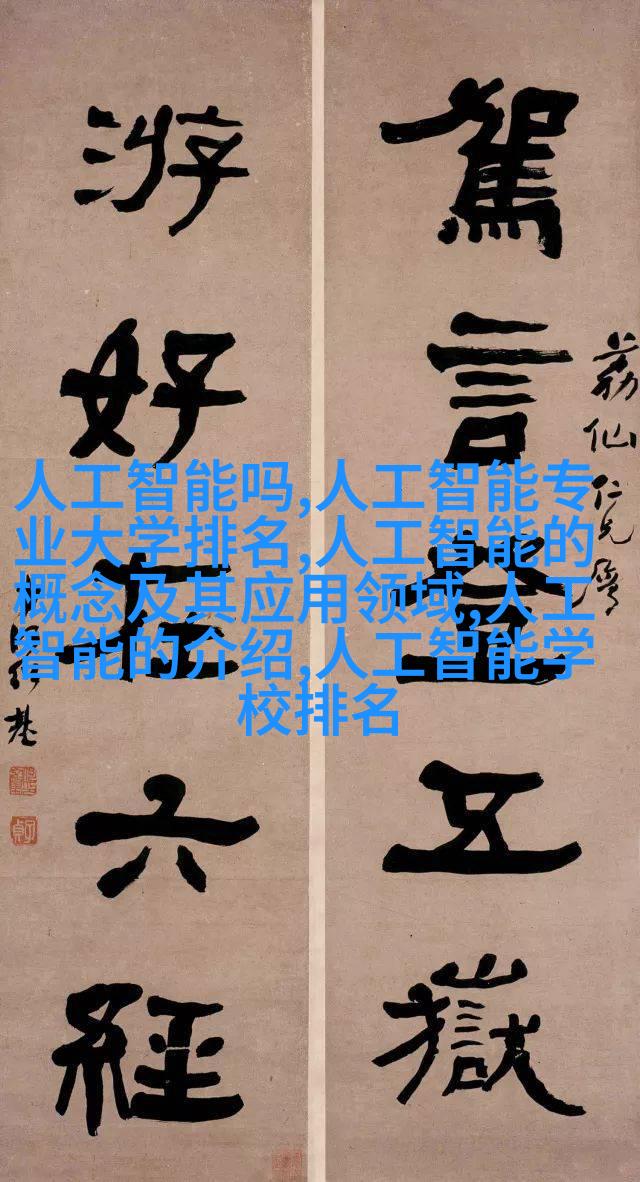 荔仙仁兄
駕言登五嶽
游好在六經
基
人工智能吗,人工智能专
业大学排名,人工智能的
概念及其应用领域,人工
智能的介绍,人工智能学
校排名